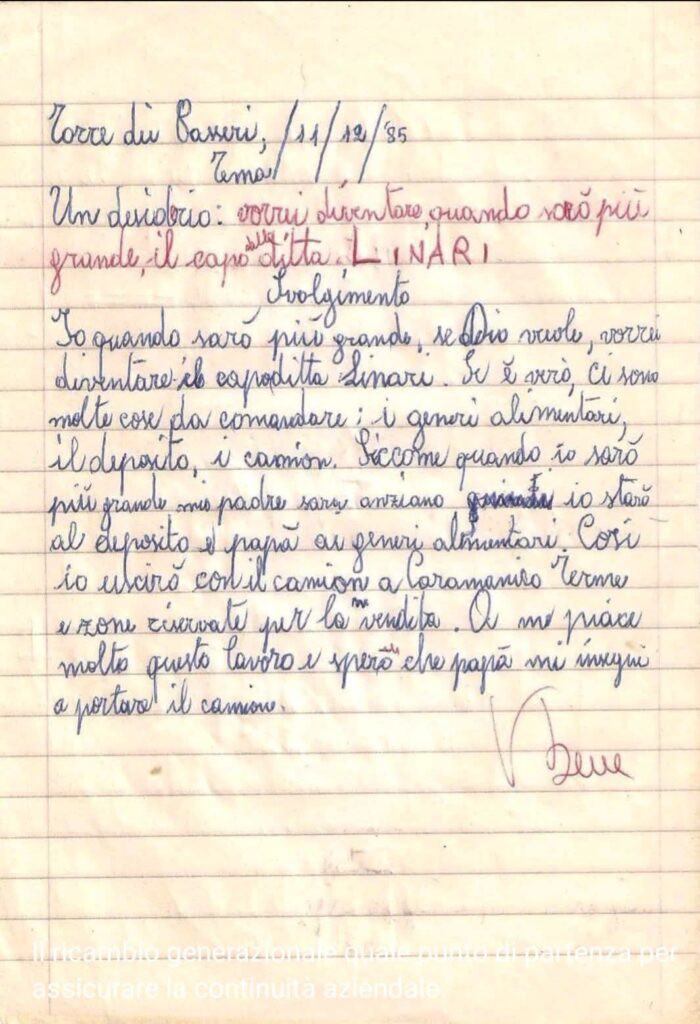 Torre dei Passeri, /11/12/85
Tema
Un desiderio: vorrei diventare, quando sarò più
grande, il capo della ditta LINARI
Svolgimento
Io quando sarò più grande, se Dio vuole, vorrei
diventare il capoditta Linari. Se è verò, ci sono
molte cose da comandare: i generi alimentari,
il deposito, i camion. Siccome quando io sarò
più grande mio padre sarà anziano io starò
al deposito e papà ai generi alimentari. Così
io uscirò con il camion a Caramanico Terme
e zone riservate per la me vendita. A me piace
molto questo lavoro e sperò che papà mi insegni
a portare il camion.
V Bene
Il ricambio generazionale quale punto di partenza per
assicurare la continuità aziendale.